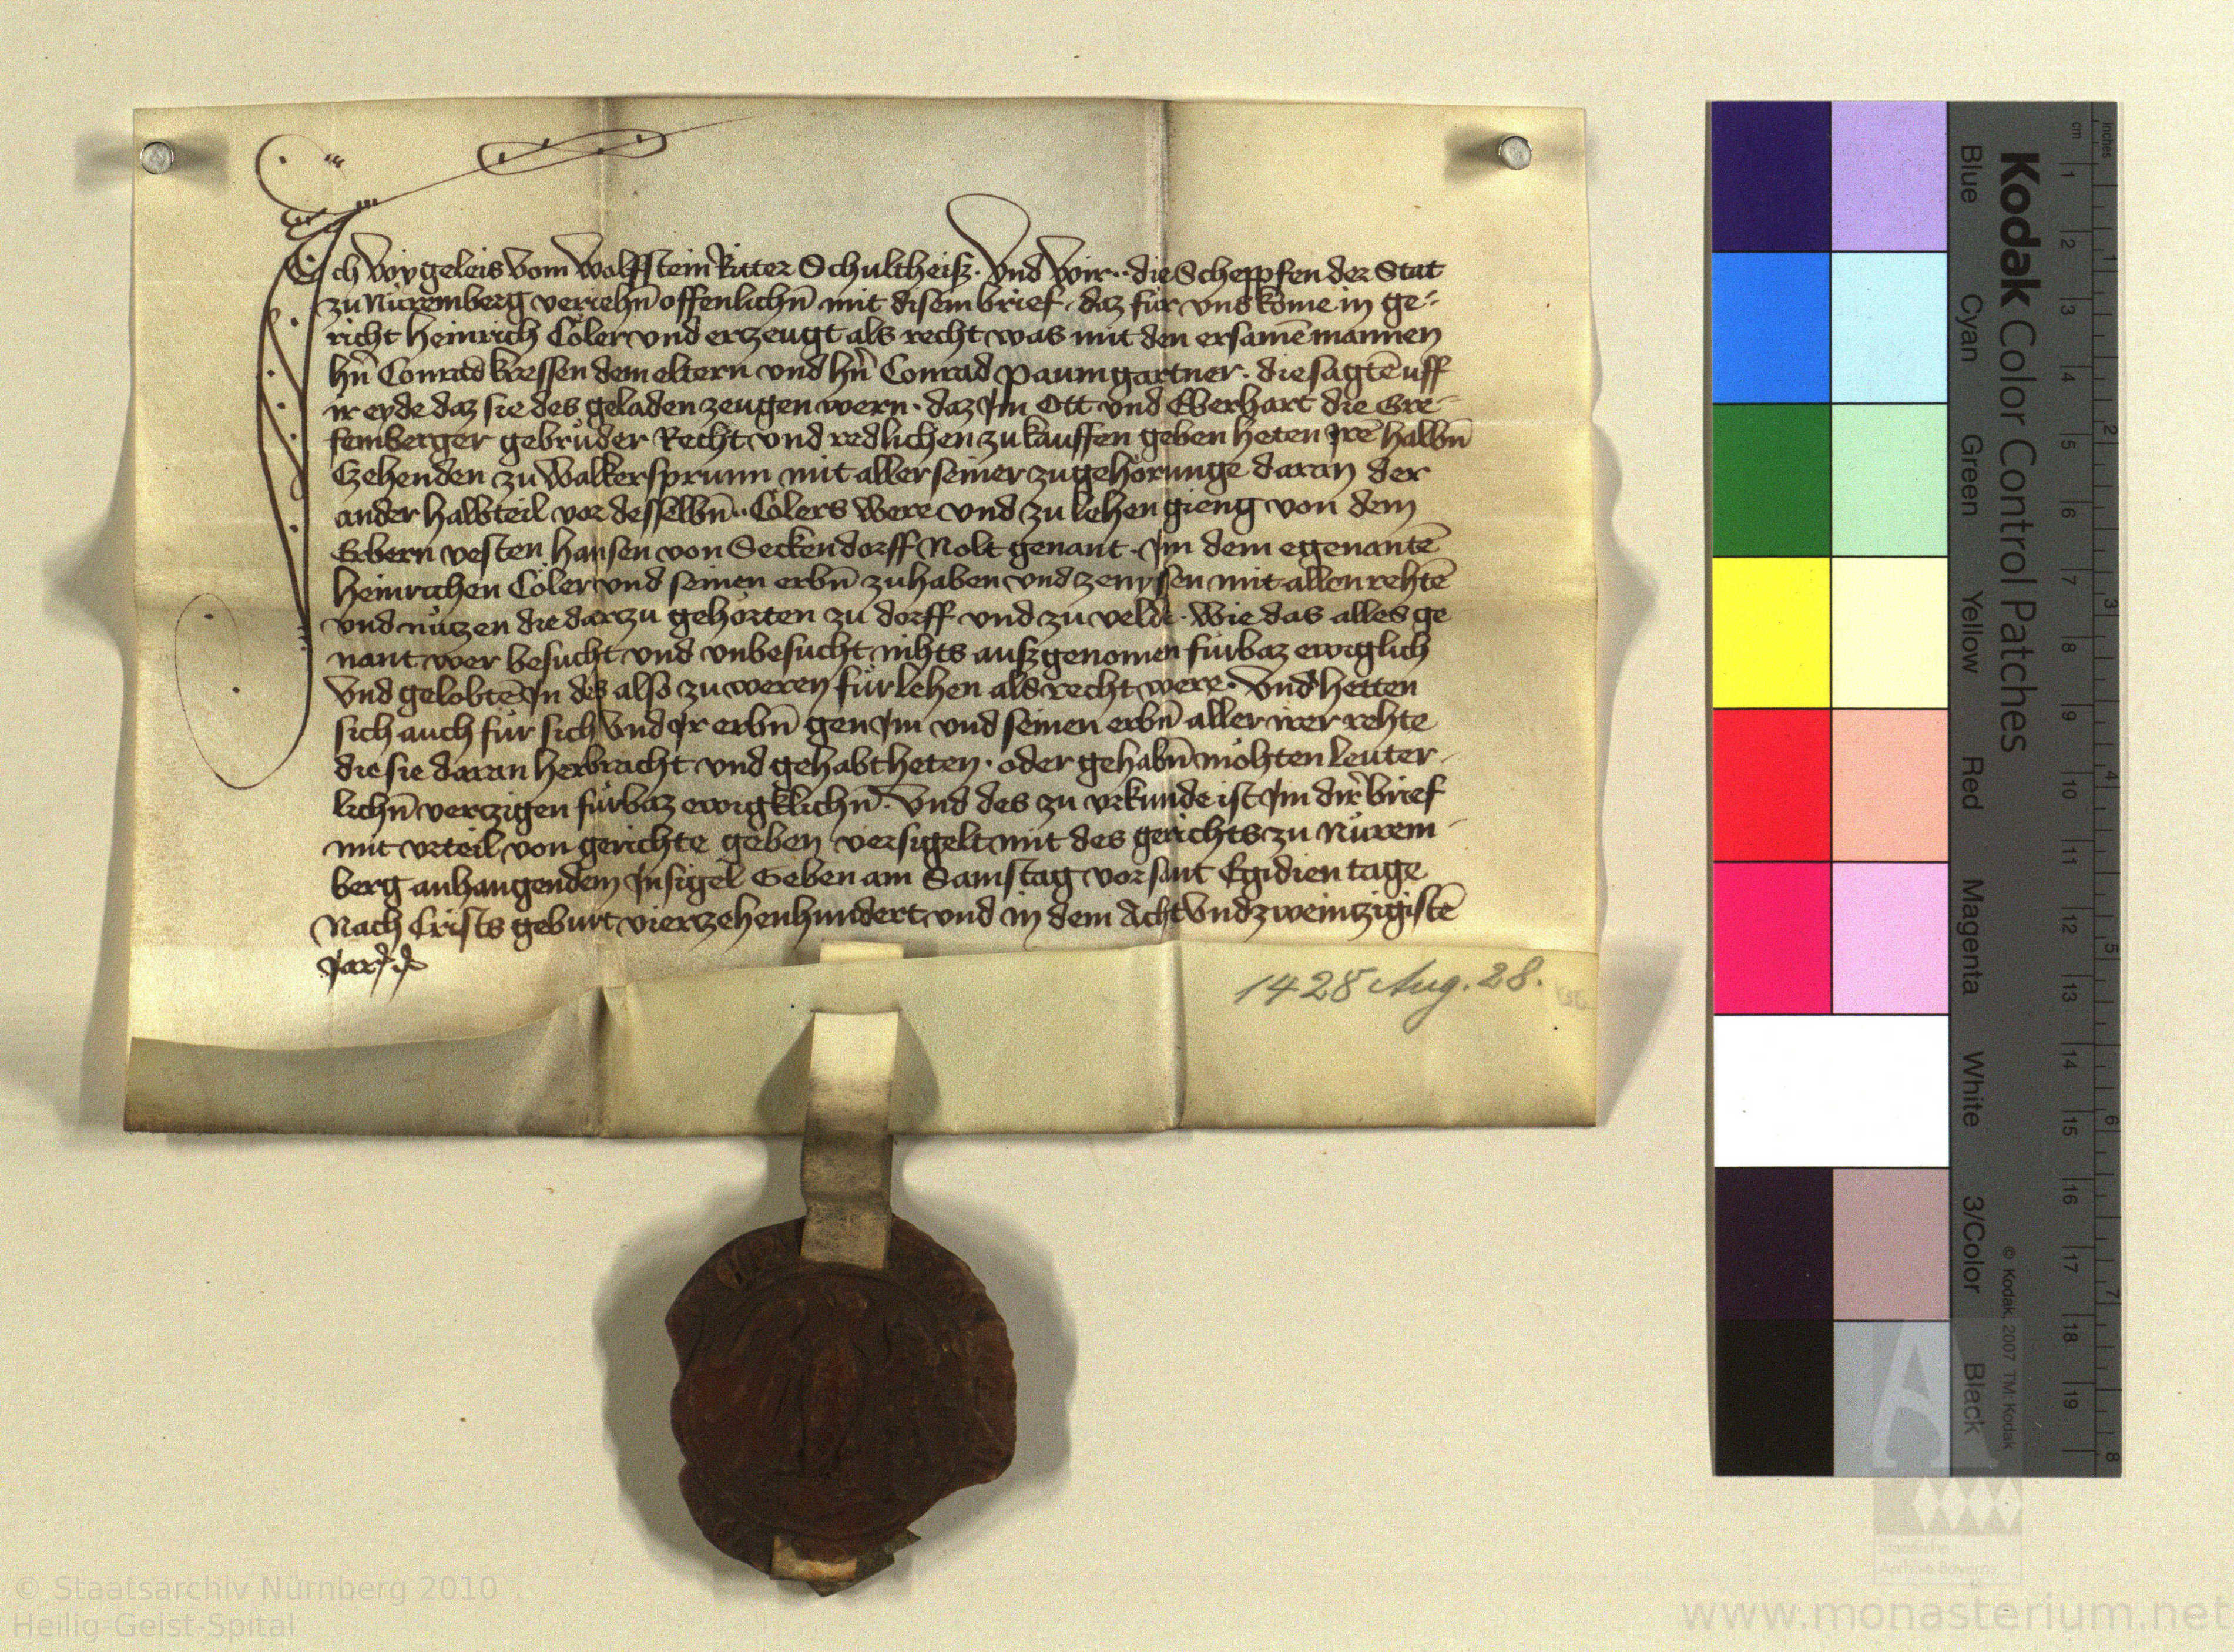 Ich Wygeleis vom Wolffstein Ritter Schultheiß · Vnd wir ·· die Scheppfen der Stat
zu Nüremberg veriehn̄ offenlichn̄ mit disem brief · daz für vns kome in ge⸗
richt Heinrich Cöler vnd erzeugt als recht was mit den ersamē mannen
hn̄ Conrad kressen dem eltern vnd hn̄ Conrad Paumgartner · die sagtē uff
ir eyde daz sie des geladen zeugen wern · daz Jm Ott vnd Eberhart die Gre⸗
femberger gebrüder Recht vnd redlichen zu kauffen geben heten Jrē halbn̄
Czehenden zu Walkersprunn mit aller seiner zugehörunge daran der
ander halbteil vor desselbn̄ ·· Cölers were vnd zu lehen gieng von dem
Erbern vesten hansen von Seckendorff Nolt genant · Jm dem egenantē
heinrichen Cöler vnd seinen erbn̄ zu haben vnd zenyssen mit allen rehtē
vnd nützen die darzu gehörten zu dorff vnd zu velde · wie das alles ge
nant wer besucht vnd vnbesucht nihts außgenomen fürbaz ewiglich
Vnd gelobtē Jn des also zu weren für lehen als recht were · Vnd hetten
sich auch für sich Vnd Jr erbn̄ gen Jm vnd seinen erbn̄ aller irer rehte
die sie daran herbracht vnd gehabt heten · oder gehabn̄ möhten leuter⸗
lichn̄ verzigen fürbaz ewigklichn̄ · Vnd des zu vrkunde ist Jm dir̄ brief
mit vrteil von gerichte geben versigelt mit des gerichts zu Nürem⸗
berg anhangendem Jnsigel Geben am Samstag vor sant Egidien tage
Nach Crists geburt vierzehenhundert vnd in dem Acht Vnd zweintzigistē
Jar
1428 Aug. 28.
Kodak Color Control Patches
Blue Cyan Green Yellow Red Magenta White 3/Color Black
© Kodak, 2007 TM: Kodak
cm 1 2 3 4 5 6 7 8 9 10 11 12 13 14 15 16 17 18 19
inches 1 2 3 4 5 6 7 8
Staatliche
Archive Bayerns
© Staatsarchiv Nürnberg 2010
Heilig-Geist-Spital
www.monasterium.net